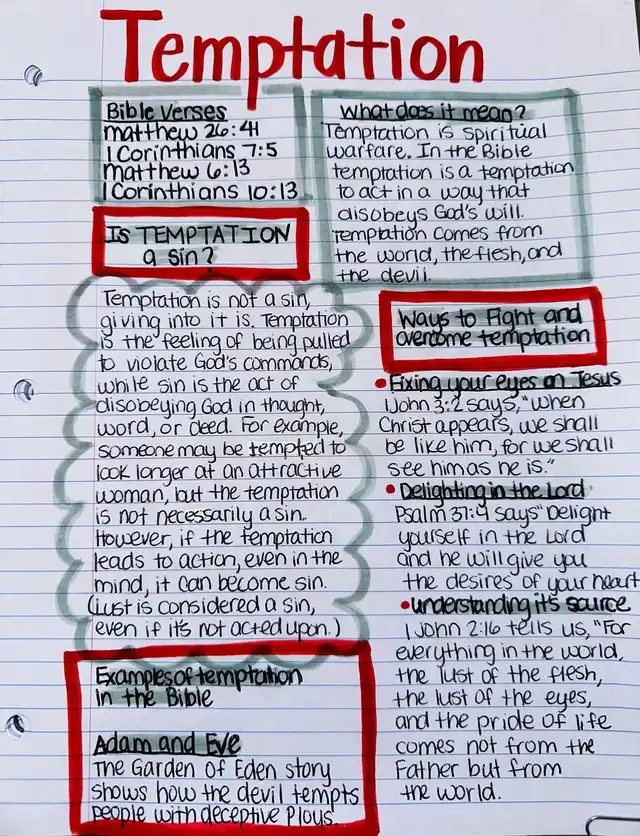 Temptation
Bible Verses
matthew 26:41
1 Corinthians 7:5
matthew 6:13
1 Corinthians 10:13
What does it mean?
Temptation is spiritual
warfare. In the Bible
temptation is a temptation
to act in a way that
disobeys God's will.
Temptation comes from
the world, the flesh, and
the devil.
Is TEMPTATION
a sin?
Temptation is not a sin,
giving into it is. Temptation
is the feeling of being pulled
to violate God's commands,
while sin is the act of
disobeying God in thought,
word, or deed. For example,
someone may be tempted to
look longer at an attractive
woman, but the temptation
is not necessarily a sin.
However, if the temptation
leads to action, even in the
mind, it can become sin.
(Lust is considered a sin,
even if it's not acted upon.)
Examples of temptation
in the Bible
Adam and Eve
The Garden of Eden story
shows how the devil tempts
people with deceptive Plous.
Ways to Fight and
overcome temptation
• Fixing your eyes on Jesus
1 John 3:2 says, "when
Christ appears, we shall
be like him, for we shall
see him as he is."
• Delighting in the Lord
Psalm 37:4 says "Delight
yourself in the Lord
and he will give you
the desires of your heart
• understanding it's source
1 John 2:16 tells us, "For
everything in the world,
the lust of the flesh,
the lust of the eyes,
and the pride of life
comes not from the
Father but from
the world.